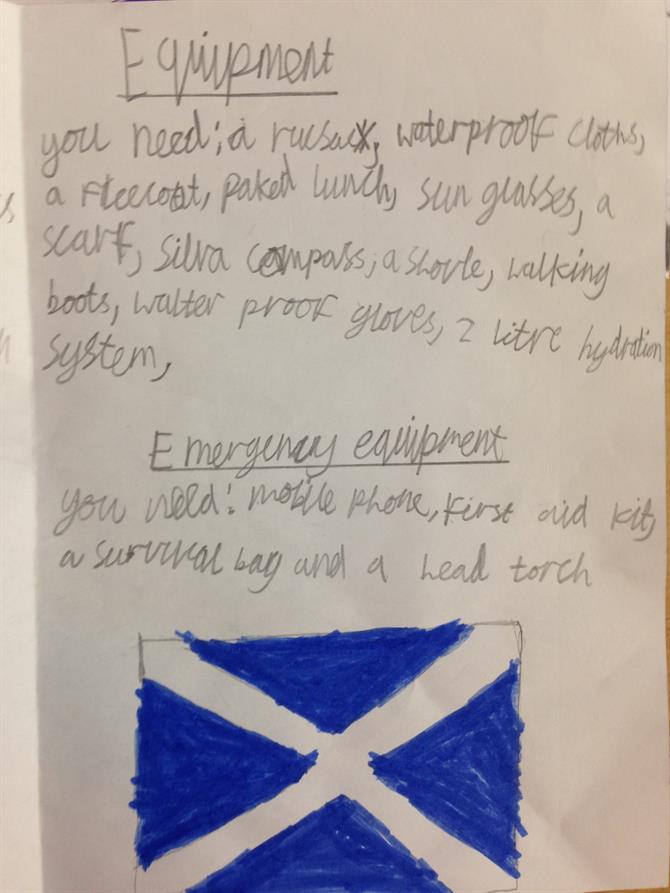 Equipment
you need: a rucsack, waterproof cloths,
a fleecoat, paked lunch, sun glasses, a
scarf, silva compass, a shovle, walking
boots, walter proof gloves, 2 litre hydration
system,
Emergency equipment
you need: mobile phone, first aid kit,
a survival bag and a head torch